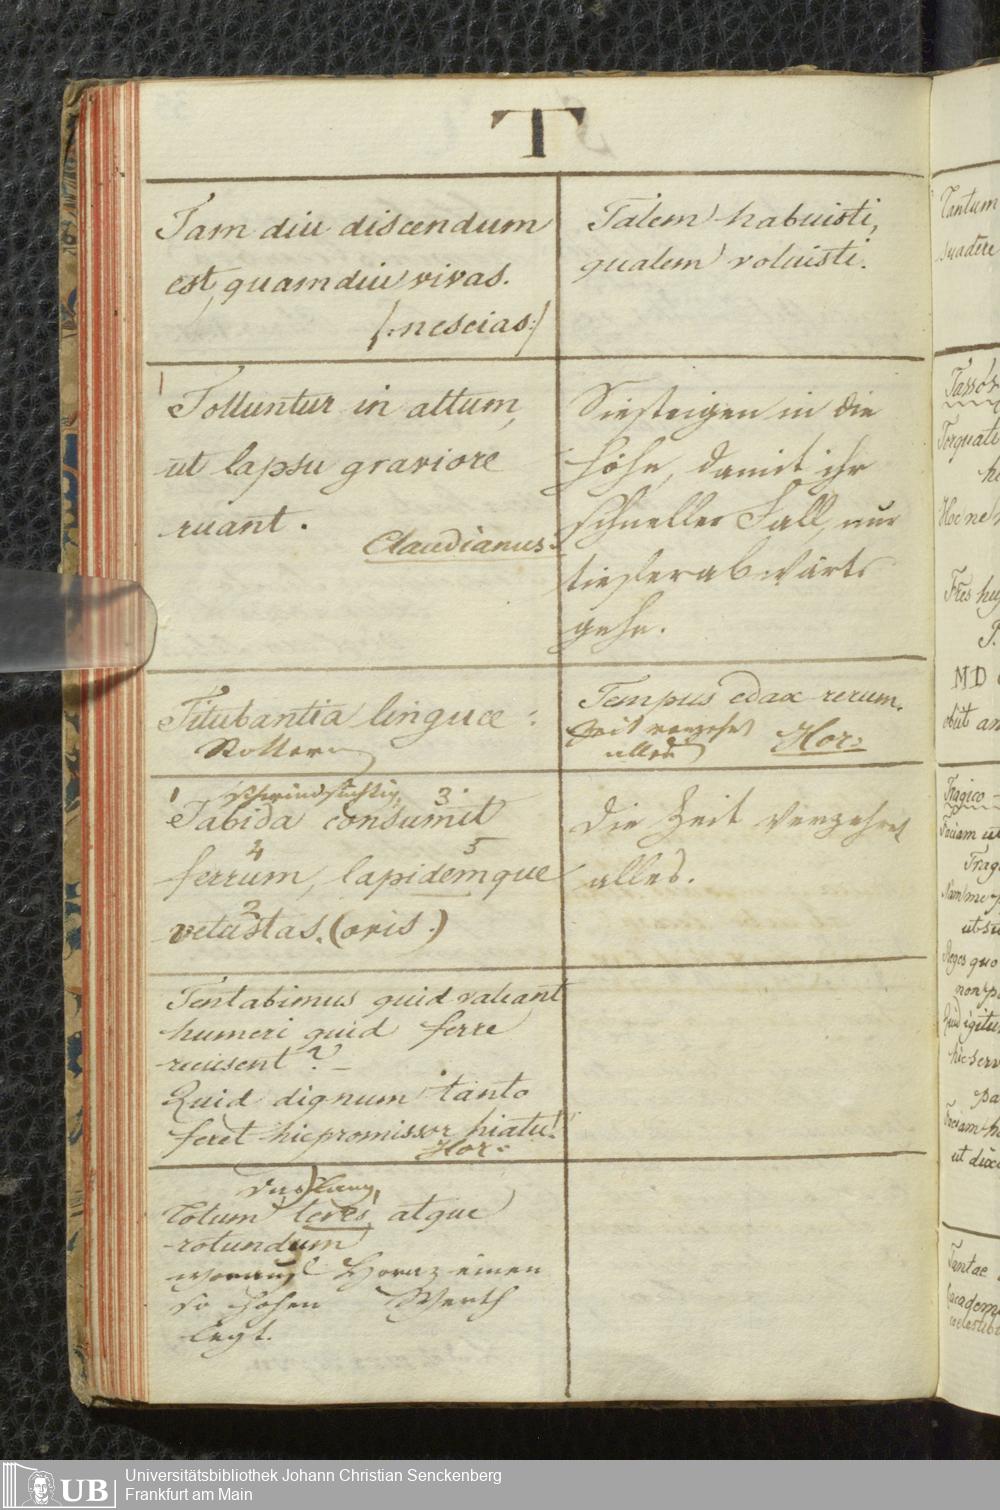 T
Tam diu discendum
est, quamdiu vivas.
/:nescias:/
Talem habuisti,
qualem voluisti.
Tolluntur in altum,
ut lapsu graviore
ruant.
Claudianus.
Sie steigen in die
Höhe, damit ihr
schneller Fall, nur
tiefer abwärts
gehe.
Titubantia linguae:
Stottern
Tempus edax rerum.
Zeit verzehrt
alles
Hor:
1 schwindsüchtig, 3.
Tabida consumit
4 5
ferrum, lapidemque
2
vetustas. (oris.)
Die Zeit verzehret
alles.
Tentabimus quid valeant
humeri quid ferre
recusent? –
Quid dignum tanto
feret hic promissor hiatu!
Hor:
Totum teres atque
rotundum
worauf Horaz einen
so hohen Werth
legt.
Tantum
suadere
Tasso's
Torquati
MD
obiit an
Tragico
Faciam ut
Reges quo
Quid igitur
hic serv
Faciam
ut dixe
Tantae
academ
caelestib
UB
Universitätsbibliothek Johann Christian Senckenberg
Frankfurt am Main